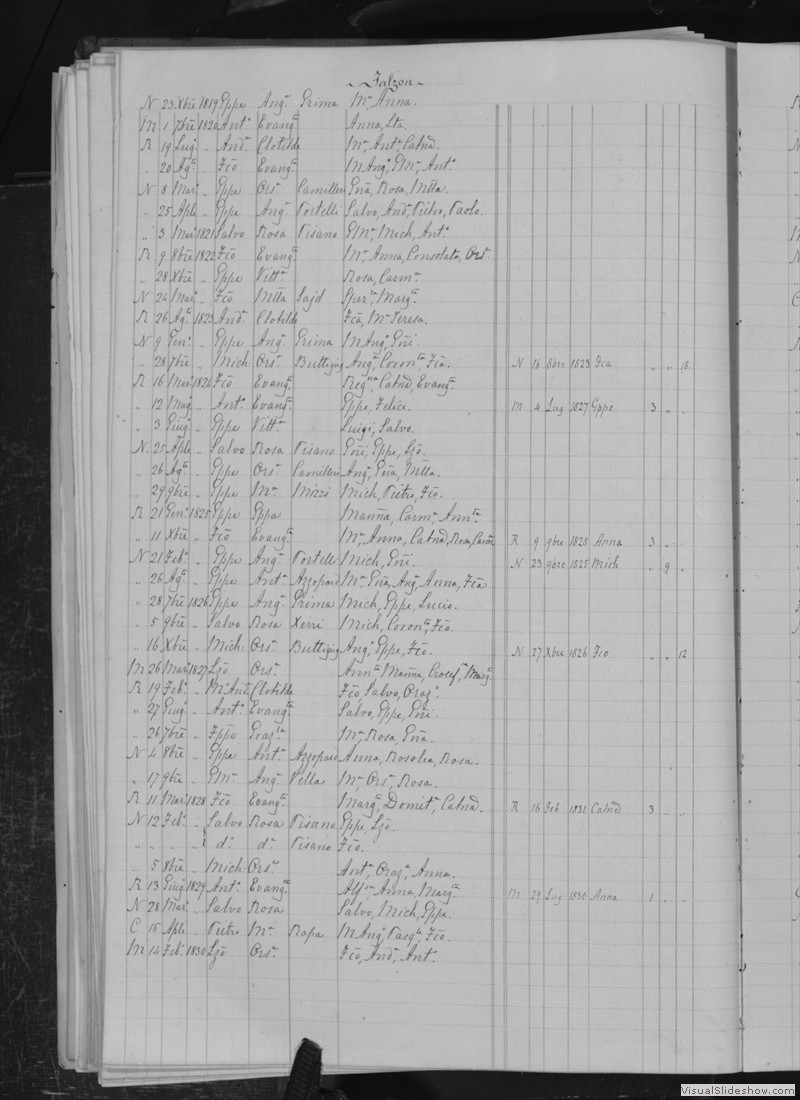 Falzon
N 23 Xbre 1819 Gppe Angª Grima Mª Anna.
M 1 7bre 1820 Antº Evangª Anna, Lta.
R 19 Lug „ Andª Clotilde Mª Antª Catnª.
„ 20 Agº „ Fco Evangª M Angª, Antª
N 8 Mar „ Gppe Orsª Camilleri Gna, Rosa, Mtta.
„ 25 Aple „ Gppe Angª Portelli Salvo, Andª, Pietro, Paolo.
„ 3 Mar 1821 Salvo Rosa Pisano Mich, Antº
R 9 8bre 1822 Fco Evangª Mª Anna, Consolata, Orsª
„ 28 Xbre „ Gppe Vittª Rosa, Carmª
N 24 Mar „ Fco Mtta Sajd Sperª, Margª
R 26 Agº 1823 Andª Clotilde Fca, Mª Teresa.
N 9 Genº „ Gppe Angª Grima M Angª, Gni.
„ 28 7bre „ Mich Orsª Buttigieg Angª, Coronta, Fca. N 16 8bre 1823 Fca „ „ 18
R 16 Mar 1824 Fco Evangª Regna Catnª, Evangª
„ 12 Mag „ Antº Evangª Gppe, Felice. M 4 Lug 1827 Gppe 3 „ „
„ 3 Giug „ Gppe Vittª Luigi, Salvo.
N 25 Aple „ Salvo Rosa Pisano Gni, Gppe, Ljo.
„ 26 Agº „ Gppe Orsª Camilleri Angª, Gna, Mtta.
„ 29 9bre „ Gppe Mª Mizzi Mich, Pietro, Fco.
R 21 Genº 1825 Gppe Gppa Manna, Carmª, Annta.
„ 11 Xbre „ Fco Evangª Mª Anna, Catnª, Rosa, Carmª R 9 9bre 1828 Anna 3 „ „
N 21 Febº „ Gppe Angª Portelli Mich, Gni. N 23 9bre 1825 Mich „ 9 „
„ 26 Agº „ Gppe Antª Azzopard Mª Gna, Angª, Anna, Fca
„ 28 7bre 1826 Gppe Angª Grima Mich, Gppe, Lucio.
„ 5 9bre „ Salvo Rosa Xerri Mich, Coronto, Fco.
„ 16 Xbre „ Mich Orsª Buttigieg Angº, Gppe, Fco. N 27 Xbre 1826 Fco „ „ 12
M 26 Mar 1827 Ljo Orsª Annta Manna, Crocefª, Margª
R 19 Febº „ Mº Antº Clotilde Fco Salvo, Orazº.
„ 27 Giug „ Antº Evangª Salvo, Gppe, Gni.
„ 26 7bre „ Fppo Grazª Mª Rosa, Gna.
N 4 8bre „ Gppe Antª Azzopard Anna, Rosolea, Rosa.
„ 17 9bre „ Angª Vella Mª Orsª Rosa.
R 11 Mar 1828 Fco Evangª Margª, Domitª, Catnª. R 16 Feb 1831 Catnª 3 „ „
N 12 Febº „ Salvo Rosa Pisano Gppe, Ljo.
„ „ „ „ dº dª Pisano Fco.
„ 5 8bre „ Mich Orsª Antª, Orazª, Anna.
R 13 Giug 1829 Antº Evangª Anna, Margª M 29 Lug 1830 Anna 1 „ „
N 28 Mar „ Salvo Rosa Salvo, Mich, Gppe.
C 15 Aple „ Pietro Mª Rapa M Angº, Pasqº, Fco.
M 14 Febº 1830 Ljo Orsª Fco, Andª, Antº
VisualSlideshow.com